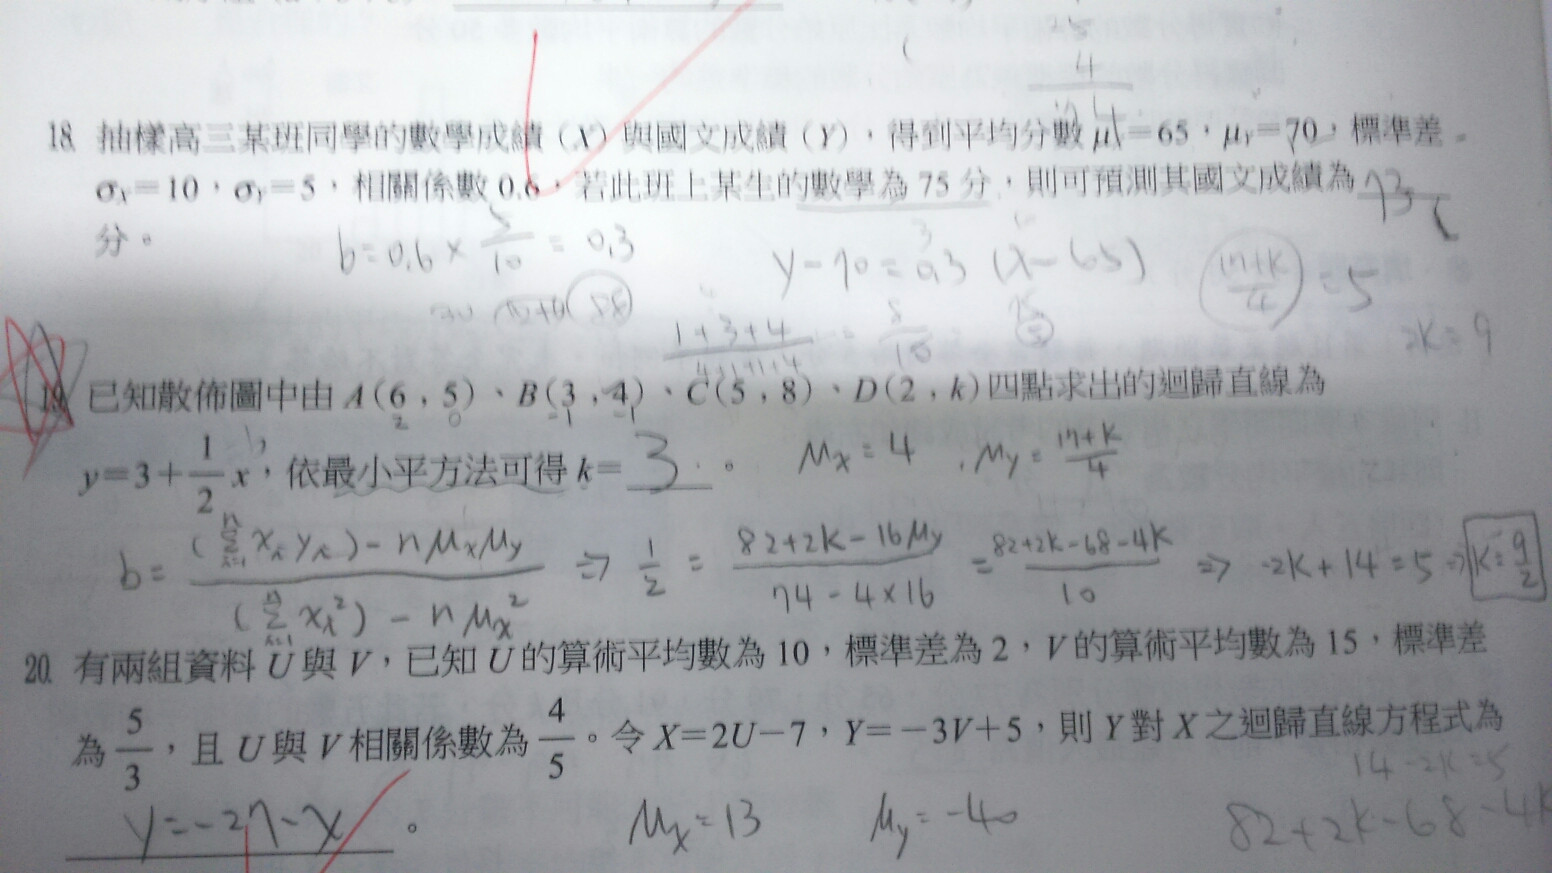 18. 抽樣高三某班同學的數學成績（X）與國文成績（Y），得到平均分數 μX=65，μY=70，標準差
σX=10，σY=5，相關係數 0.6，若此班上某生的數學為 75 分，則可預測其國文成績為 73
分。
b=0.6×5/10=0.3
y-70=0.3(x-65)
(17+k)/4=5
(1+3+4)/(4+1+1+4)=8/10
2k=9
19. 已知散佈圖中由 A(6,5)、B(3,4)、C(5,8)、D(2,k) 四點求出的迴歸直線為
y=3+1/2x，依最小平方法可得 k=3。
Mx=4，My=(17+k)/4
b=((Σxiyi)-nMxMy)/((Σxi²)-nMx²) ⇒ 1/2=(82+2k-16My)/(74-4×16)=(82+2k-68-4k)/10 ⇒ -2k+14=5 ⇒ k=9/2
20. 有兩組資料 U 與 V，已知 U 的算術平均數為 10，標準差為 2，V 的算術平均數為 15，標準差
為 5/3，且 U 與 V 相關係數為 4/5。令 X=2U-7，Y=-3V+5，則 Y 對 X 之迴歸直線方程式為
14-2k=5
y=-27-x。
Mx=13
My=-40
82+2k-68-4k